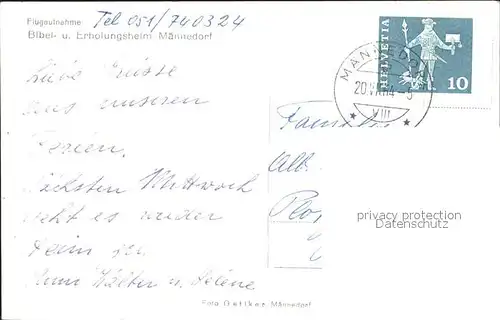 Flugaufnahme
Tel 051/740324
Bibel- u. Erholungsheim Männedorf
Liebe Grüsse
aus unseren
Ferien.
Nächsten Mittwoch
geht es wieder
heim zu
Walter u. Helene
HELVETIA
10
MÄNNEDORF
20.VII.64-
VIII
Familie
Alb.
privacy protection
Datenschutz
Foto Getiker, Männedorf